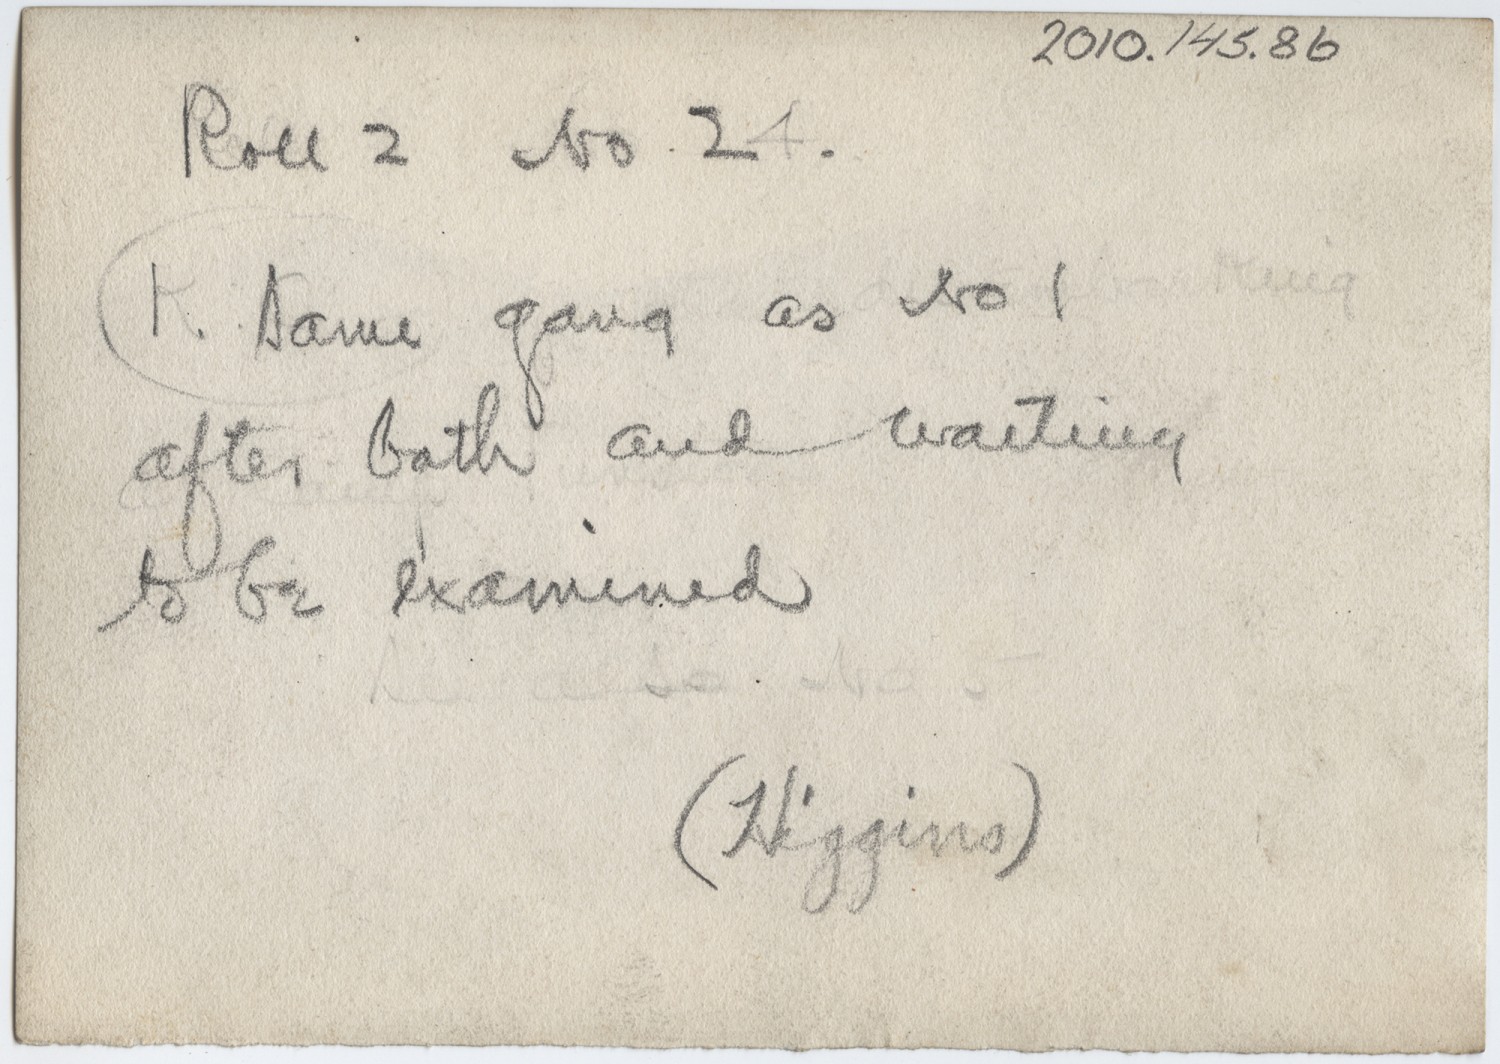 2010.145.86
Roll 2 No. 24.
K. Same gang as No 1
after bath and waiting
to be examined
also No 5
(Higgins)